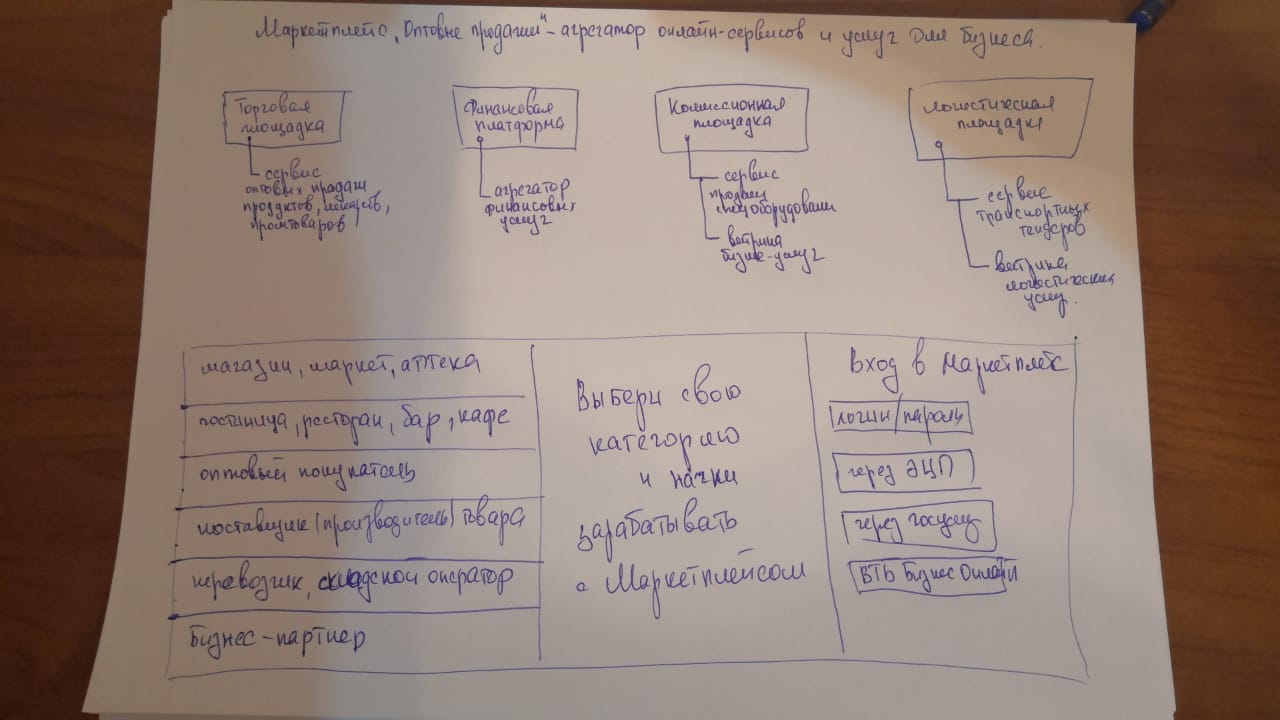 Маркетплейс „Оптовые продажи" – агрегатор онлайн-сервисов и услуг для бизнеса.
Торговая
площадка
сервис
оптовых продаж
продуктов, лекарств,
промтоваров
Финансовая
платформа
агрегатор
финансовых
услуг
Комиссионная
площадка
сервис
продажи
спецоборудования
витрина
бизнес-услуг
Логистическая
площадка
сервис
транспортных
тендеров
витрина
логистических
услуг.
магазин, маркет, аптека
гостиница, ресторан, бар, кафе
оптовый покупатель
поставщик (производитель) товара
перевозчик, складской оператор
Бизнес-партнер
Выбери свою
категорию
и начни
зарабатывать
с Маркетплейсом
Вход в Маркетплейс
логин/пароль
через ЭЦП
через госуслуг
ВТБ Бизнес Онлайн